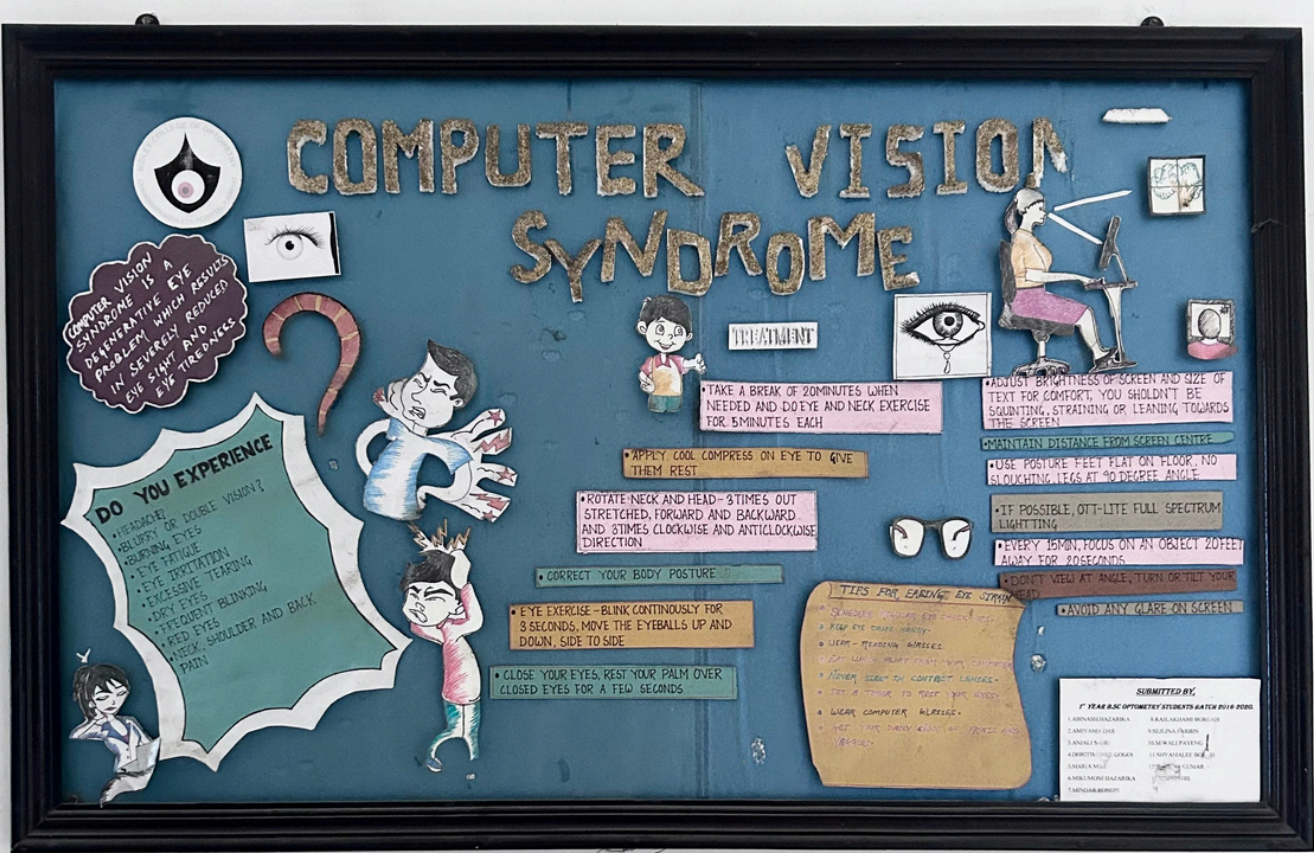 COMPUTER VISION
SYNDROME
COMPUTER VISION
SYNDROME IS A
DEGENERATIVE EYE
PROBLEM WHICH RESULTS
IN SEVERELY REDUCED
EYE SIGHT AND
EYE TIREDNESS
DO YOU EXPERIENCE
•HEADACHE?
•BLURRY OR DOUBLE VISION?
•BURNING EYES
•EYE FATIGUE
•EYE IRRITATION
•EXCESSIVE TEARING
•DRY EYES
•FREQUENT BLINKING
•RED EYES
•NECK, SHOULDER AND BACK
PAIN
TREATMENT
•TAKE A BREAK OF 20MINUTES WHEN
NEEDED AND DO EYE AND NECK EXERCISE
FOR 5MINUTES EACH
•APPLY COOL COMPRESS ON EYE TO GIVE
THEM REST
•ROTATE NECK AND HEAD-3TIMES OUT
STRETCHED, FORWARD AND BACKWARD
AND 3TIMES CLOCKWISE AND ANTICLOCKWISE
DIRECTION
•CORRECT YOUR BODY POSTURE
•EYE EXERCISE-BLINK CONTINOUSLY FOR
3 SECONDS, MOVE THE EYEBALLS UP AND
DOWN, SIDE TO SIDE
•CLOSE YOUR EYES, REST YOUR PALM OVER
CLOSED EYES FOR A FEW SECONDS
•ADJUST BRIGHTNESS OF SCREEN AND SIZE OF
TEXT FOR COMFORT, YOU SHOLDN'T BE
SQUINTING, STRAINING OR LEANING TOWARDS
THE SCREEN
•MAINTAIN DISTANCE FROM SCREEN CENTRE
•USE POSTURE FEET FLAT ON FLOOR, NO
SLOUCHING, LEGS AT 90 DEGREE ANGLE
•IF POSSIBLE, OTT-LITE FULL SPECTRUM
LIGHTTING
•EVERY 15MIN, FOCUS ON AN OBJECT 20FEET
AWAY FOR 20SECONDS
•DON'T VIEW AT ANGLE, TURN OR TILT YOUR
HEAD
•AVOID ANY GLARE ON SCREEN
TIPS FOR EASING EYE STRAIN
• SCHEDULE REGULAR EYE CHECK UPS.
• KEEP EYE DROPS HANDY.
• WEAR - READING GLASSES
• EAT LUNCH AWAY FROM YOUR COMPUTER
• NEVER SLEEP IN CONTACT LENSES.
• SET A TIMER TO REST YOUR EYES.
• WEAR COMPUTER GLASSES.
• GET YOUR DAILY DOSE OF FRUITS AND
VEGGIES.
SUBMITTED BY,
1st YEAR B.SC OPTOMETRY STUDENTS BATCH 2016-2020.
1.ABINASH HAZARIKA
2.AMIYAM DAS
3.ANJALI
4. GOGOI
5.MARIA
6.MIKUMONI HAZARIKA
7.MINDAR
8.RAJLAKHAMI BOROAH
9.
10.SEWALI PAYENG
11.SHYAMALEE
KUMAR